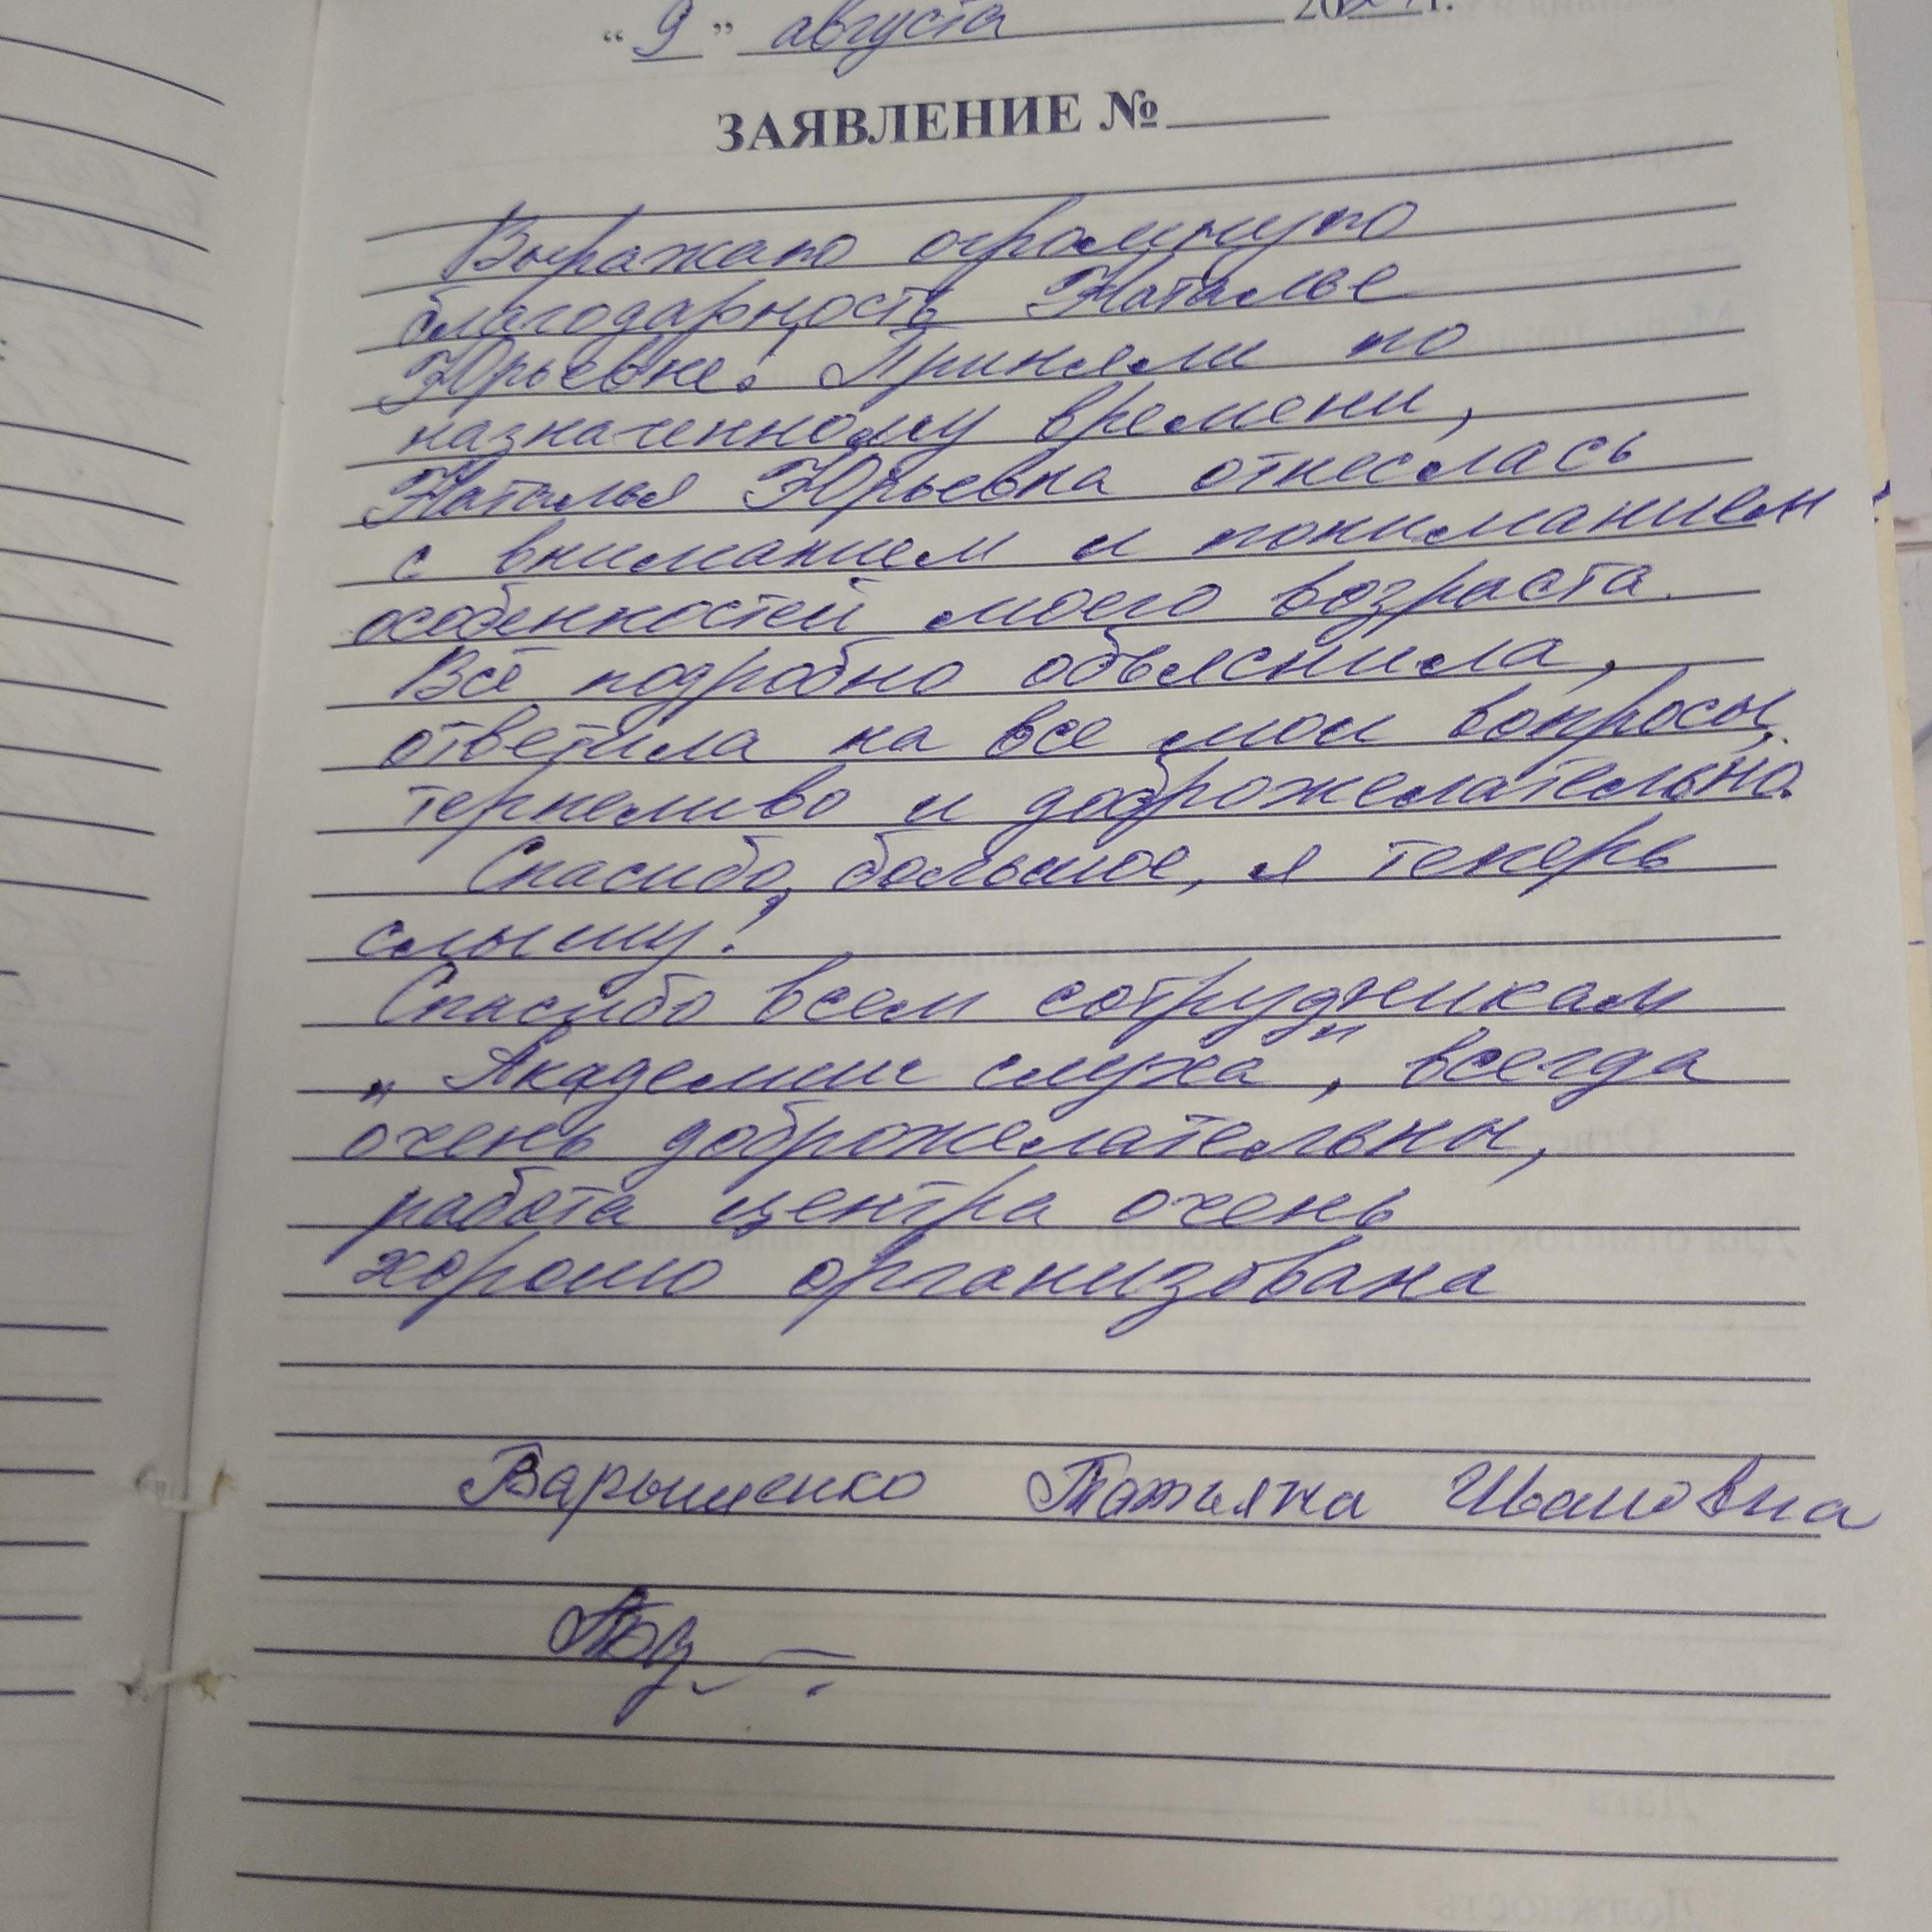 “ 9 ” августа 20 г.
ЗАЯВЛЕНИЕ №
Выражаю огромную
благодарность Наталье
Юрьевне! Приняли по
назначенному времени,
Наталья Юрьевна отнеслась
с вниманием и пониманием
особенностей моего возраста.
Всё подробно объяснила,
ответила на все мои вопросы,
терпеливо и доброжелательно.
Спасибо большое, я теперь
слышу!
Спасибо всем сотрудникам
„Академии слуха", всегда
очень доброжелательны,
работа центра очень
хорошо организована
Варыщенко Татьяна Ивановна